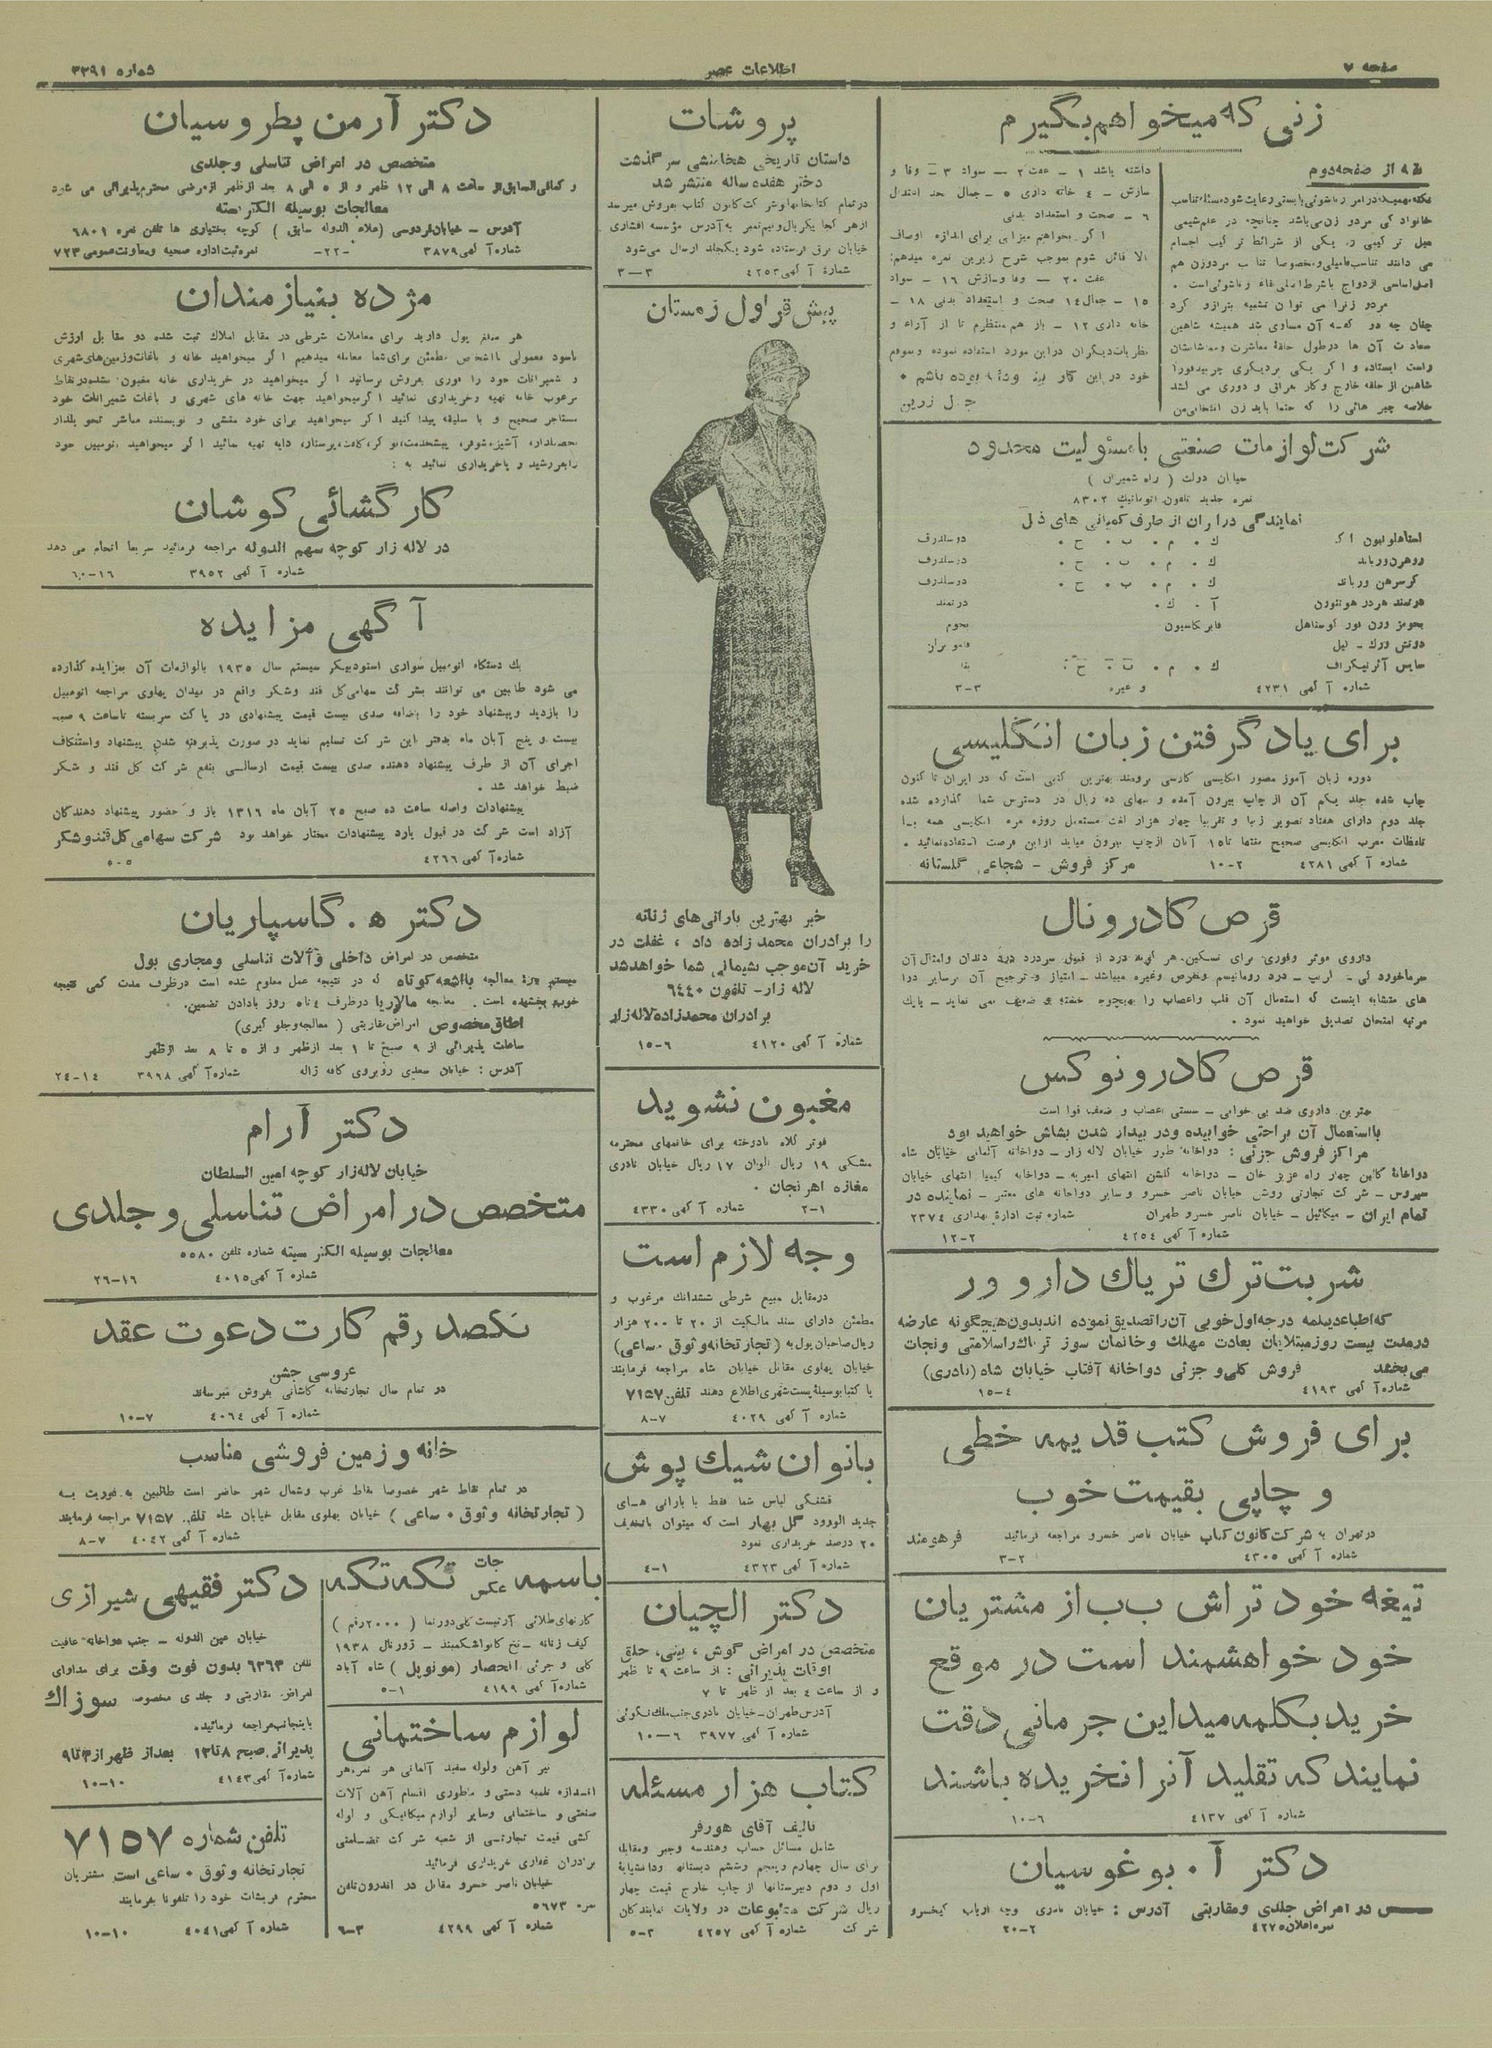 صفحه ۷
اطلاعات عصر
شماره ۳۳۹۱
زنی که میخواهم بگیرم
از صفحه دوم
خانواده کی مردو زن می‌باشد چنانچه در علم شیمی
میل ترکیبی و یکی از شرائط ترکیب اجسام
می دانند تناسب فامیلی و مخصوصا تناسب مردوزن هم
مردو زنرا می توان تشبیه بترازو کرد
چنان چه دو کفه آن مساوی شد همیشه شاهین
سعادت آن ها درطول
راست ایستاده و اگر یکی بردیگری چربید فورا
شاهین از حلقه خارج وکار بعرائی و دوری می کشد
خلاصه چیز هائی را که حتما باید زن انتخابی من
داشته باشد ۱ - عفت ۲ - سواد ۳ - وفا و
سازش - ۴ خانه داری ۵ - جمال حد اعتدال
۶ - صحت و استعداد بدنی
اگر بخواهیم میزانی برای اندازه اوصاف
بالا قائل شوم بموجب شرح زیرین نمره میدهم:
عفت ۲۰ - وفا وسازش ۱۶ - سواد
۱۵ - جمال ۱۴ صحت و استعداد بدنی ۱۸ -
خانه داری ۱۲ - باز هم منتظرم تا از آراء و
نظریات دیگران دراین مورد استفاده نموده وسهم
خود در این کار
زرین
شرکت لوازمات صنعتی با مسئولیت محدود
خیابان دولت ( راه شمیران )
نمره جدید تلفون اتوماتیک ۸۳۰۲
نمایندگی در ایران از طرف کمپانی های ذیل
ك . م . ب . ح . دوسلدرف
ك . م . ب . ح . دوسلدرف
ك . م . ب . ح . دوسلدرف
آ . ك . درتمند
فابریکاسیون بخوم
شماره آگهی ۴۲۳۱ و غیره ۳-۳
برای یاد گرفتن زبان انگلیسی
دوره زبان آموز مصور انگلیسی فارسی برومند بهترین کتبی است که در ایران تا کنون
چاپ شده جلد یکم آن از چاپ بیرون آمده و ببهای ده ریال در دسترس شما گذارده شده
جلد دوم دارای هفتاد تصویر زیبا و تقریبا چهار هزار لغت مستعمل روزه مره انگلیسی همه با
تلفظات معرب انگلیسی صحیح منتها تا ۱۵ آبان ازچاپ بیرون میاید ازاین فرصت استفاده نمائید .
شماره آگهی ۴۲۸۱ ۲-۱۰ مرکز فروش - شجاعی گلستانه
قرص کادرونال
داروی موثر وفوری برای تسکین هر گونه درد از قبیل سردرد درد دندان وامثال آن
سرماخوردگی - گریپ - درد روماتیسم ونقرص وغیره میباشد - امتیاز و ترجیح آن برسایر دوا
های متشابه اینست که استعمال آن قلب واعصاب را بهیچوجه خسته و ضعیف نمی نماید - بایك
مرتبه امتحان تصدیق خواهید نمود .
قرص کادرونوکس
بهترین داروی ضد بی خوابی - سستی اعصاب و ضعف قوا است
بااستعمال آن براحتی خوابیده ودر بیدار شدن بشاش خواهید بود
مراکز فروش جزئی : دواخانه طور خیابان لاله زار - دواخانه آلمانی خیابان شاه
چهار راه عزیز خان - دواخانه گلشن انتهای امیریه - دواخانه کیمیا انتهای خیابان
سیروس - شرکت تجارتی روشن خیابان ناصر خسرو و سایر دواخانه های معتبر - نماینده در
تمام ایران - میکائیل - خیابان ناصر خسرو طهران شماره ثبت اداره بهداری ۲۳۷۴
شماره آگهی ۴۲۵۴ ۲-۱۲
شربت ترك تریاك دارو ور
که اطباء دیپلمه درجه اول خوبی آن را تصدیق نموده اند بدون هیچگونه عارضه
درمدت بیست روز مبتلایان بعادت مهلك و خانمان سوز تریاك را سلامتی و نجات
می بخشد فروش کلی و جزئی دواخانه آفتاب خیابان شاه (نادری)
شماره آگهی ۴۱۹۳ ۴-۱۵
برای فروش کتب قدیمه خطی
و چاپی بقیمت خوب
درتهران به شرکت کانون کتاب خیابان ناصر خسرو مراجعه فرمائید فرهومند
شماره آگهی ۴۳۰۵ ۲-۳
تیغه خود تراش ب ب از مشتریان
خود خواهشمند است در موقع
خرید بکلمه میداین جرمانی دقت
نمایند که تقلید آنرا نخریده باشند
شماره آگهی ۴۱۳۷ ۶-۱۰
دکتر آ . بوغوسیان
در امراض جلدی ومقاربتی آدرس : خیابان نادری کوچه ارباب کیخسرو
نمره اعلان ۴۲۷۵ ۲-۲۰
پروشات
داستان تاریخی هخامنشی سرگذشت
دختر هفده ساله منتشر شد
درتمام کتابخانه ها وشرکت کانون کتاب بفروش میرسد
ازهر کجا یکریال ونیم تمبر به آدرس مؤسسه افشاری
خیابان برق فرستاده شود یکجلد ارسال می‌شود
شماره آگهی ۴۲۵۳ ۳-۳
پیش قراول زمستان
خبر بهترین بارانی های زنانه
را برادران محمد زاده داد ، غفلت در
خرید آن موجب پشیمانی شما خواهد شد
لاله زار - تلفون ۶۴۴۰
برادران محمد زاده لاله زار
شماره آگهی ۴۱۲۰ ۶-۱۵
مغبون نشوید
فوتر کلاه نادوخته برای خانمهای محترمه
مشکی ۱۹ ریال الوان ۱۷ ریال خیابان نادری
مغازه اهرنجان .
شماره آگهی ۴۳۳۰ ۱-۲
وجه لازم است
درمقابل مبیع شرطی ششدانك مرغوب و
مطمئن دارای سند مالکیت از ۲۰ تا ۲۰۰ هزار
ریال صاحبان پول به (تجارتخانه وثوق . ساعی)
خیابان پهلوی مقابل خیابان شاه مراجعه فرمایند
یا کتبا بوسیله پست شهری اطلاع دهند تلفن ۷۱۵۷
شماره آگهی ۴۰۲۹ ۷-۸
بانوان شیك پوش
قشنگی لباس شما فقط با بارانی های
جدید الورود گل بهار است که میتوان باتخفیف
۲۰ درصد خریداری نمود
شماره آگهی ۴۳۲۳ ۱-۴
دکتر الچیان
متخصص در امراض گوش ، بینی، حلق
اوقات پذیرائی : از ساعت ۹ تا ظهر
و از ساعت ۴ بعد از ظهر تا ۷
آدرس طهران - خیابان نادری جنب ملك نکوئی
شماره آگهی ۳۹۷۷ ۶-۱۰
کتاب هزار مسئله
تالیف آقای هورفر
شامل مسائل حساب وهندسه وجبر ومقابله
برای سال چهارم وپنجم وششم دبستانها ودانشپایهٔ
اول و دوم دبیرستانها از چاپ خارج قیمت چهار
ریال شرکت مطبوعات در ولایات نمایندگان
شرکت شماره آگهی ۴۲۵۷ ۳-۵
دکتر آرمن پطروسیان
متخصص در امراض تناسلی وجلدی
و کمافی السابق از ساعت ۸ الی ۱۲ ظهر و از ۵ الی ۸ بعد ازظهر ازمرضی محترم پذیرائی می شود
معالجات بوسیله الکتریسته
آدرس - خیابان فردوسی (علاء الدوله سابق ) کوچه بختیاری ها تلفن نمره ۶۸۰۱
شماره آگهی ۳۸۷۹ -۲۲- نمره ثبت اداره صحیه ومعاونت عمومی ۷۲۳
مژده بنیازمندان
هر مبلغ پول دارید برای معاملات شرطی در مقابل املاك ثبت شده دو مقابل ارزش
باسود معمولی بااشخاص مطمئن برای شما معامله میدهیم اگر میخواهید خانه و باغات وزمین‌های شهری
و شمیرانات خود را فوری بفروش برسانید اگر میخواهید در خریداری خانه مغبون نشده در نقاط
مرغوب خانه تهیه وخریداری نمائید اگر میخواهید جهت خانه های شهری و باغات شمیرانات خود
مستأجر صحیح و با سلیقه پیدا کنید اگر میخواهید برای خود منشی و نویسنده مباشر تحویلدار
تحصیلدار، آشپز، شوفر، پیشخدمت، نوکر، کلفت، پرستار، دایه تهیه نمائید اگر میخواهید اتومبیل خود
رابفروشید و یاخریداری نمائید به :
کارگشائی کوشان
در لاله زار کوچه سهم الدوله مراجعه فرمائید سریعا انجام می دهد
شماره آگهی ۳۹۵۲ ۱۶-۶۰
آگهی مزایده
یك دستگاه اتومبیل سواری استودبیکر سیستم سال ۱۹۳۵ بالوازمات آن بمزایده گذارده
می شود طالبین می توانند بشرکت سهامی کل قند وشکر واقع در میدان پهلوی مراجعه اتومبیل
را بازدید وپیشنهاد خود را باضافه صدی بیست قیمت پیشنهادی در پاکت سربسته تاساعت ۹ صبح
بیست و پنج آبان ماه بدفتر این شرکت تسلیم نماید در صورت پذیرفته شدن پیشنهاد واستنکاف
اجرای آن از طرف پیشنهاد دهنده صدی بیست قیمت ارسالی بنفع شرکت کل قند و شکر
ضبط خواهد شد .
پیشنهادات واصله ساعت ده صبح ۲۵ آبان ماه ۱۳۱۶ باز و حضور پیشنهاد دهندگان
آزاد است شرکت در قبول یارد پیشنهادات مختار خواهد بود شرکت سهامی کل قندوشکر
شماره آگهی ۴۲۶۶ ۵-۵
دکتر ه . گاسپاریان
متخصص در امراض داخلی وآلات تناسلی ومجاری بول
سیستم معالجه بااشعه کوتاه که در نتیجه عمل معلوم شده است درظرف مدت کمی نتیجه
خوبی بخشیده است . معالجه مالاریا درظرف ۴ تا ۶ روز بادادن تضمین.
اطاق مخصوص امراض مقاربتی ( معالجه وجلوگیری)
ساعات پذیرائی از ۹ صبح تا ۱ بعد ازظهر و از ۵ تا ۸ بعد ازظهر
آدرس : خیابان سعدی روبروی کافه ژاله شماره آگهی ۳۹۶۸ ۱۴-۲۴
دکتر آرام
خیابان لاله زار کوچه امین السلطان
متخصص در امراض تناسلی و جلدی
معالجات بوسیله الکتریسیته شماره تلفن ۵۵۸۰
شماره آگهی ۴۰۱۵ ۱۶-۲۶
یکصد رقم کارت دعوت عقد
عروسی جشن
در تمام سال تجارتخانه کاشانی بفروش میرساند
شماره آگهی ۴۰۶۴ ۷-۱۰
خانه و زمین فروشی مناسب
در تمام نقاط شهر خصوصا نقاط غرب وشمال شهر حاضر است طالبین به فوریت به
( تجارتخانه وثوق . ساعی ) خیابان پهلوی مقابل خیابان شاه تلفن ۷۱۵۷ مراجعه فرمایند
شماره آگهی ۴۰۴۲ ۷-۸
باسمه جات عکس تکه تکه
کارتهای طلائی آرتیست گلی دورنما ( ۲۰۰۰ رقم )
کیف زنانه - نخ کانواشکمبند - ژورنال ۱۹۳۸
کلی و جزئی انحصار (مونوپل) شاه آباد
شماره آگهی ۴۱۹۹ ۱-۵
لوازم ساختمانی
تیر آهن ولوله سفید آلمانی هر نمره هر
اندازه تلمبه دستی و ماطوری اقسام آهن آلات
صنعتی و ساختمانی وسایر لوازم میکانیکی و لوله
کشی قیمت تجارتی از شعبه شرکت تضامنی
برادران غفاری خریداری فرمائید
خیابان ناصر خسرو مقابل در اندرون تلفن
نمره ۵۶۷۳
شماره آگهی ۴۲۹۹ ۳-۶
دکتر فقیهی شیرازی
خیابان عین الدوله - جنب دواخانه عافیت
تلفن ۶۲۶۳ بدون فوت وقت برای مداوای
امراض مقاربتی و جلدی مخصوصا سوزاك
باینجانب مراجعه فرمائید.
پذیرائی صبح ۸ تا ۱۲ بعد از ظهر از ۳ تا ۹
شماره آگهی ۴۱۴۳ ۱۰-۱۰
تلفن شماره ۷۱۵۷
تجارتخانه وثوق . ساعی است مشتریان
محترم فرمایشات خود را تلفونا بفرمایند
شماره آگهی ۴۰۴۱ ۱۰-۱۰